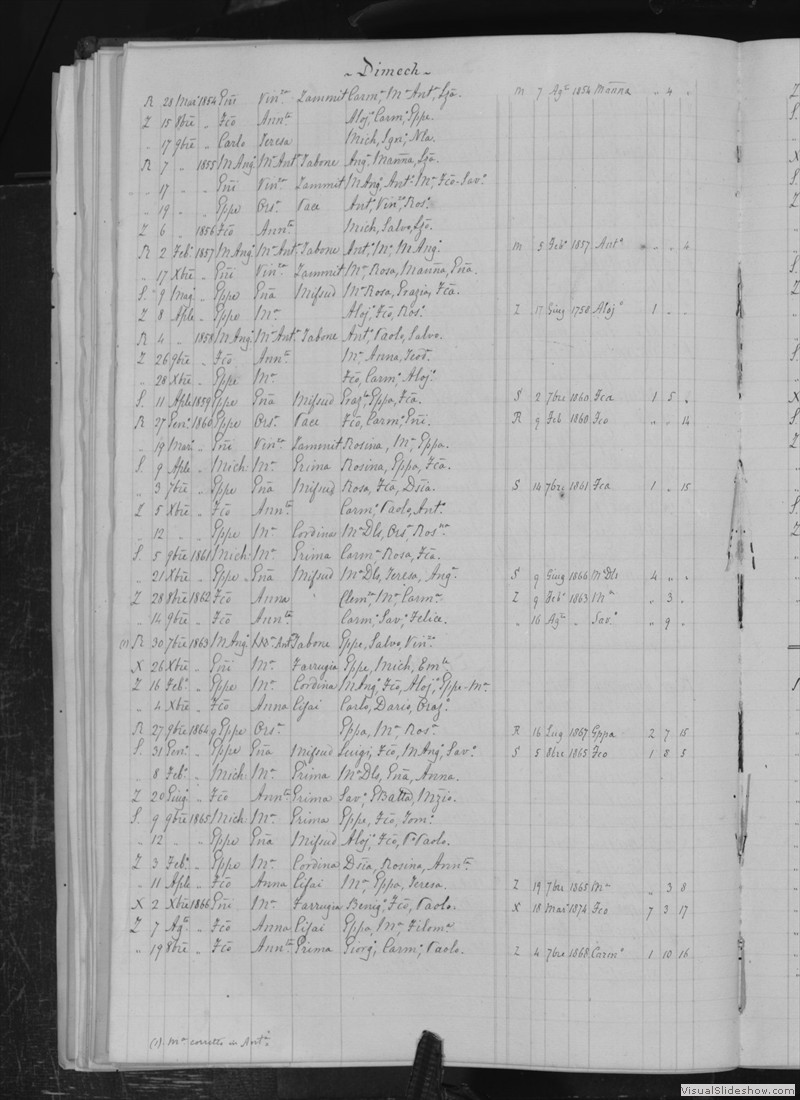 ~ Dimech ~
R 28 Mar 1854 Eñi Vin.za Zammit Carm.a M.a Ant.a Lza. M 7 Ag.to 1854 Mañna " 4 "
Z 15 8bre " Fco Ann.ta Aloj.o Carm.o Eppe.
" 17 9bre " Carlo Teresa Mich, Ign.o Nla.
R 7 " 1855 M Ang.o M.a Ant.a Tabone Ang.o Mañna, Lza.
" 17 " " Eñi Vin.za Zammit M Ang.o Ant.o M.a Fco-Sav.o
" 19 " " Eppe Ors.a Pace Ant.o Vin.o Ros.o
Z 6 " 1856 Fco Ann.ta Mich, Salvo, Lzo.
R 2 Feb.o 1857 M Ang.o M.a Ant.a Tabone Ant.o M.a M Ang.o M 5 Feb.o 1857 Ant.o " " 4
" 17 Xbre " Eñi Vin.za Zammit M.a Rosa, Mañna, Eña.
S. 9 Mag.o " Eppe Eña Mifsud M.a Rosa, Grazia, Fca.
Z 8 Aple " Eppe M.a Aloj.o Fco, Ros.o Z 17 Giug 1758 Aloj.o 1 " "
R 4 " 1858 M Ang.o M.a Ant.a Tabone Ant.o Paolo, Salvo.
Z 26 9bre " Fco Ann.ta M.a Anna, Teod.a
" 28 Xbre " Eppe M.a Fco, Carm.o Aloj.o
S. 11 Aple 1859 Eppe Eña Mifsud Graz.a Eppa, Fca. S 2 7bre 1860 Fca 1 5 "
R 27 Gen.o 1860 Eppe Ors.a Pace Fco, Carm.o Eñi. R 9 Feb 1860 Fco " " 14
" 19 Mar.o " Eñi Vin.za Zammit Rosina, M.a Eppa.
S. 9 Aple " Mich.e M.a Grima Rosina, Eppa, Fca.
" 3 7bre " Eppe Eña Mifsud Rosa, Fca, Dsta. S 14 7bre 1861 Fca 1 " 15
Z 5 Xbre " Fco Ann.ta Carm.o Paolo, Ant.o
" 12 " " Eppe M.a Cordina M.a Dls, Ors.a Ros.na
S. 5 9bre 1861 Mich.e M.a Grima Carm.a Rosa, Fca.
" 21 Xbre " Eppe " Eña Mifsud M.a Dls, Teresa, Ang.a S 9 Giug 1866 M.a Dls 4 " "
Z 28 8bre 1862 Fco Anna Clem.a M.a Carm.a Z 9 Feb.o 1863 M.a " 3 "
" 14 9bre " Fco Ann.ta Carm.o Sav.o Felice. " 16 Ag.to " Sav.o " 9 "
(1) R 30 7bre 1863 M Ang.o M.a Ant.a Tabone Eppe, Salvo, Vin.zo
X 26 Xbre " Eñi M.a Farrugia Eppe, Mich, Em.le
Z 16 Feb.o " Eppe M.a Cordina M Ang.o Fco, Aloj.o Eppe-M.a
" 4 Xbre " Fco Anna Cifai Carlo, Dario, Oraz.o
R 27 9bre 1864 Eppe Ors.a Eppa, M.a Ros.a R 16 Lug 1867 Eppa 2 7 15
S. 31 Gen.o " Eppe Eña Mifsud Luigi, Fco, M Ang.o Sav.o S 5 8bre 1865 Fco 1 8 5
" 8 Feb.o " Mich.e M.a Grima M.a Dls, Eña, Anna.
Z 20 Giug " Fco Ann.ta Grima Sav.o GBatta, Nzio.
S. 9 9bre 1865 Mich.e M.a Grima Eppe, Fco, Tom.o
" 12 " " Eppe Eña Mifsud Aloj.o Fco, P. Paolo.
Z 3 Feb.o " Eppe M.a Cordina Dsta, Rosina, Ann.ta
" 11 Aple " Fco Anna Cifai M.a Eppa, Teresa. Z 19 7bre 1865 M.a " 3 8
X 2 Xbre 1866 Eñi M.a Farrugia Benig.o Fco, Paolo. X 18 Mar 1874 Fco 7 3 17
Z 7 Ag.to " Fco Anna Cifai Eppa, M.a Filom.a
" 19 8bre " Fco Ann.ta Grima Giorg.o Carm.o Paolo. Z 4 7bre 1868 Carm.o 1 10 16
(1) M.a corretto in Ant.a
VisualSlideshow.com